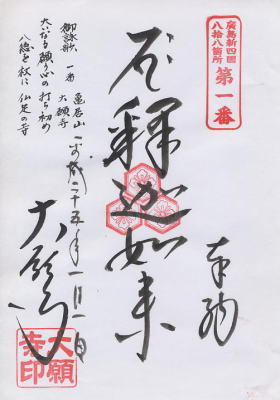 廣島新四國
八拾八箇所
第一番
奉納
釋迦如来
御詠歌 一番 亀居山
大願寺
大いなる願い心の打ち初め
平成二十五年一月一日
大願寺
大願寺印